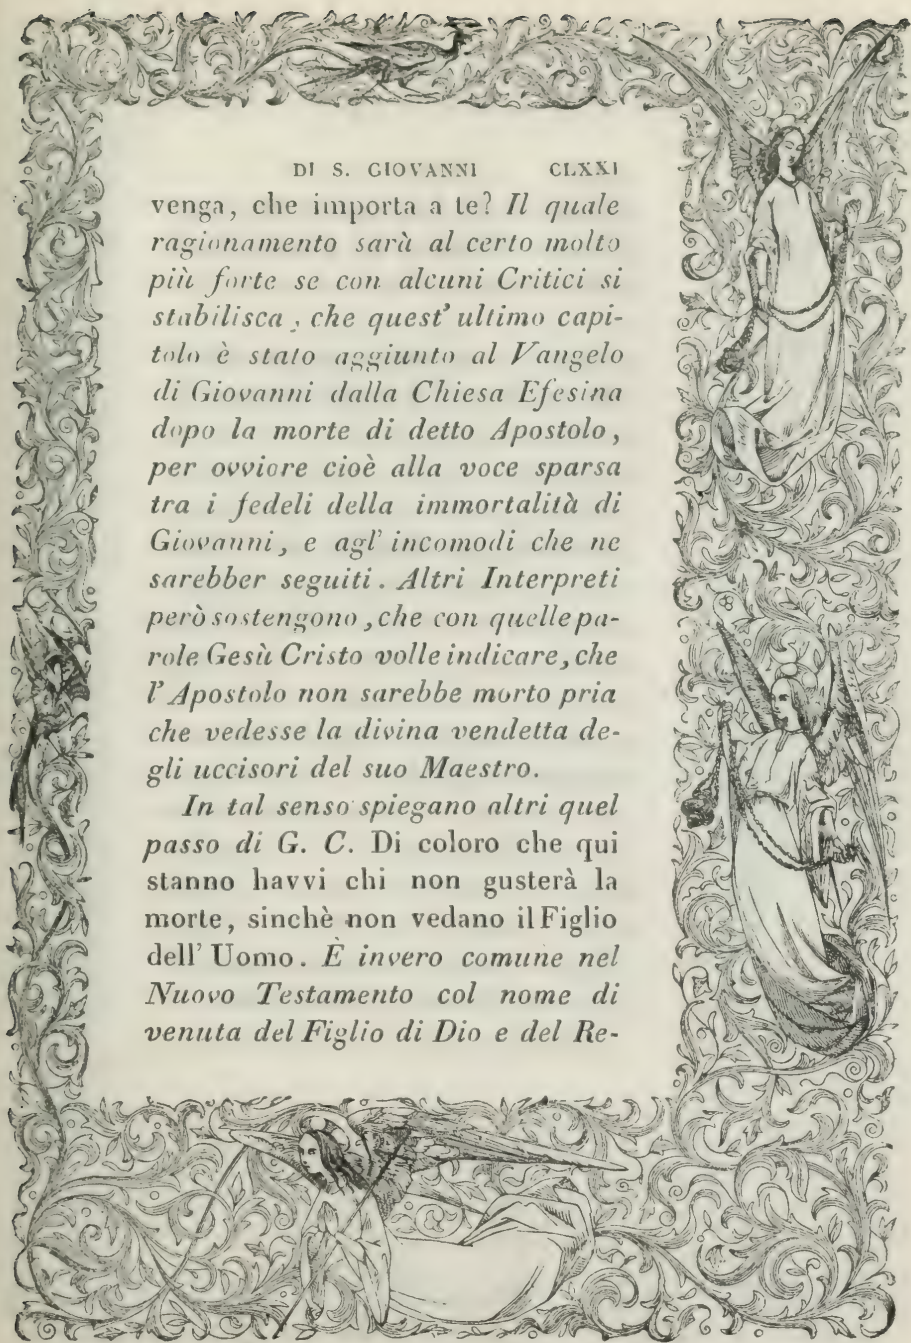 DI S. GIOVANNI CLXXI
venga, che importa a te? Il quale
ragionamento sarà al certo molto
più forte se con alcuni Critici si
stabilisca, che quest' ultimo capi-
tolo è stato aggiunto al Vangelo
di Giovanni dalla Chiesa Efesina
dopo la morte di detto Apostolo,
per ovviare cioè alla voce sparsa
tra i fedeli della immortalità di
Giovanni, e agl' incomodi che ne
sarebber seguiti. Altri Interpreti
però sostengono, che con quelle pa-
role Gesù Cristo volle indicare, che
l' Apostolo non sarebbe morto pria
che vedesse la divina vendetta de-
gli uccisori del suo Maestro.
In tal senso spiegano altri quel
passo di G. C. Di coloro che qui
stanno havvi chi non gusterà la
morte, sinchè non vedano il Figlio
dell' Uomo. È invero comune nel
Nuovo Testamento col nome di
venuta del Figlio di Dio e del Re-